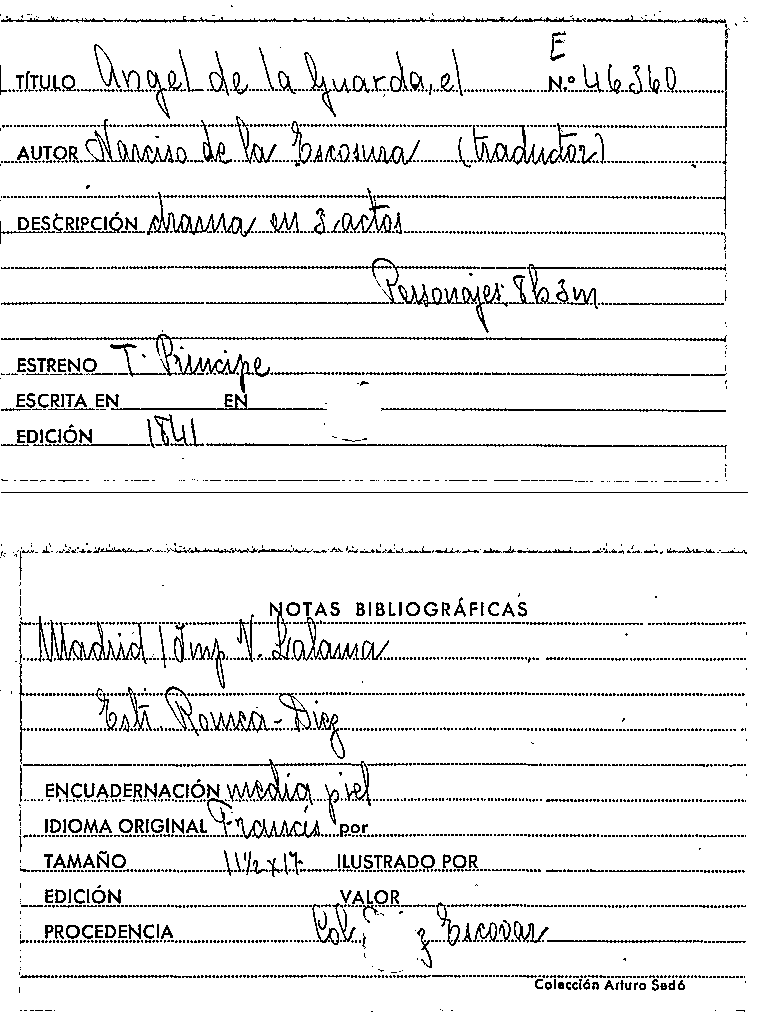 E
TÍTULO Angel de la Guarda, el N.º 46360
AUTOR Narciso de la Escosura (traductor)
DESCRIPCIÓN drama en 3 actos
Personajes: 8h 3m
ESTRENO T. Principe
ESCRITA EN EN
EDICIÓN 1841
NOTAS BIBLIOGRÁFICAS
Madrid / Imp V. Lalama
Romea-Diez
ENCUADERNACIÓN media piel
IDIOMA ORIGINAL Francés por
TAMAÑO 11½x17 ILUSTRADO POR
EDICIÓN VALOR
PROCEDENCIA Col. z Escovar
Colección Arturo Sedó